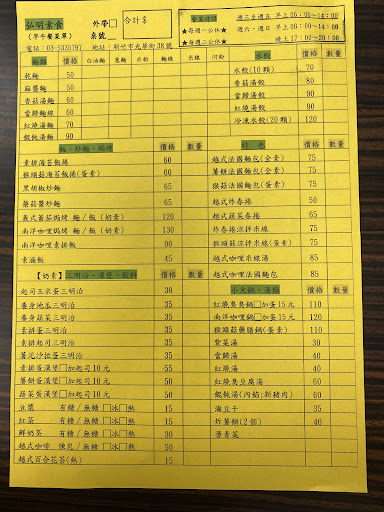 弘明素食
(早午餐菜單)
外帶□
桌號
合計$
營業時間
★每週一公休★
★每周二公休★
週三至週五 早上06:00~14:00
週六、週日 早上06:00~14:00
晚上17:00~20:00
電話:03-5335797 地址:新竹市光華街38號
麵類 價格 白油麵 意麵 米粉 麵線 米線 河粉 數量
乾麵 50
麻醬麵 50
香菇湯麵 60
當歸麵線 60
紅燒湯麵 70
餛飩湯麵 90
水餃 價格 數量
水餃(10顆) 70
香菇湯餃 80
當歸湯餃 90
紅燒湯餃 90
冷凍水餃(20顆) 120
飯、炒麵、焗烤 價格 數量
素排海苔飯捲 60
猴頭菇海苔飯捲(蛋素) 60
黑胡椒炒麵 65
蘑菇醬炒麵 65
義式蕃茄焗烤 麵/飯 (奶素) 120
南洋咖哩焗烤 麵/飯 (奶素) 130
南洋咖哩素排飯 90
素油飯 45
特色 價格 數量
越式法國麵包(全素) 75
薯餅法國麵包(全素) 75
猴菇法國麵包(蛋素) 75
越式炸春捲 50
越式蔬菜春捲 50
炸春捲涼拌米線 75
猴頭菇涼拌米線(蛋素) 75
越式咖哩米線湯 85
越式咖哩法國麵包 85
【奶素】三明治、漢堡、飲料 價格 數量
起司玉米蛋三明治 30
養身地瓜三明治 35
養身蔬菜三明治 35
素排蛋三明治 35
素排起司三明治 35
薯泥沙拉蛋三明治 35
素排蛋漢堡□加起司10元 55
薯餅蛋漢堡□加起司10元 50
蔬菜蛋漢堡□加起司10元 50
豆漿 有糖/無糖 □冰□熱 15
紅茶 有糖/無糖 □冰□熱 15
鮮奶茶 有糖/無糖 □冰□熱 30
越式咖啡 煉乳/無糖 □冰□熱 50
越式百合花茶(熱) 15
小火鍋、湯類 價格 數量
紅燒臭臭鍋□加蛋15元 110
南洋咖哩鍋□加蛋15元 120
猴頭菇藥膳鍋(蛋素) 110
紫菜湯 30
當歸湯 40
紅燒湯 40
紅燒臭豆腐湯 60
餛飩湯(內餡:新豬肉) 60
滷豆干 35
炸薯餅(2個) 40
燙青菜